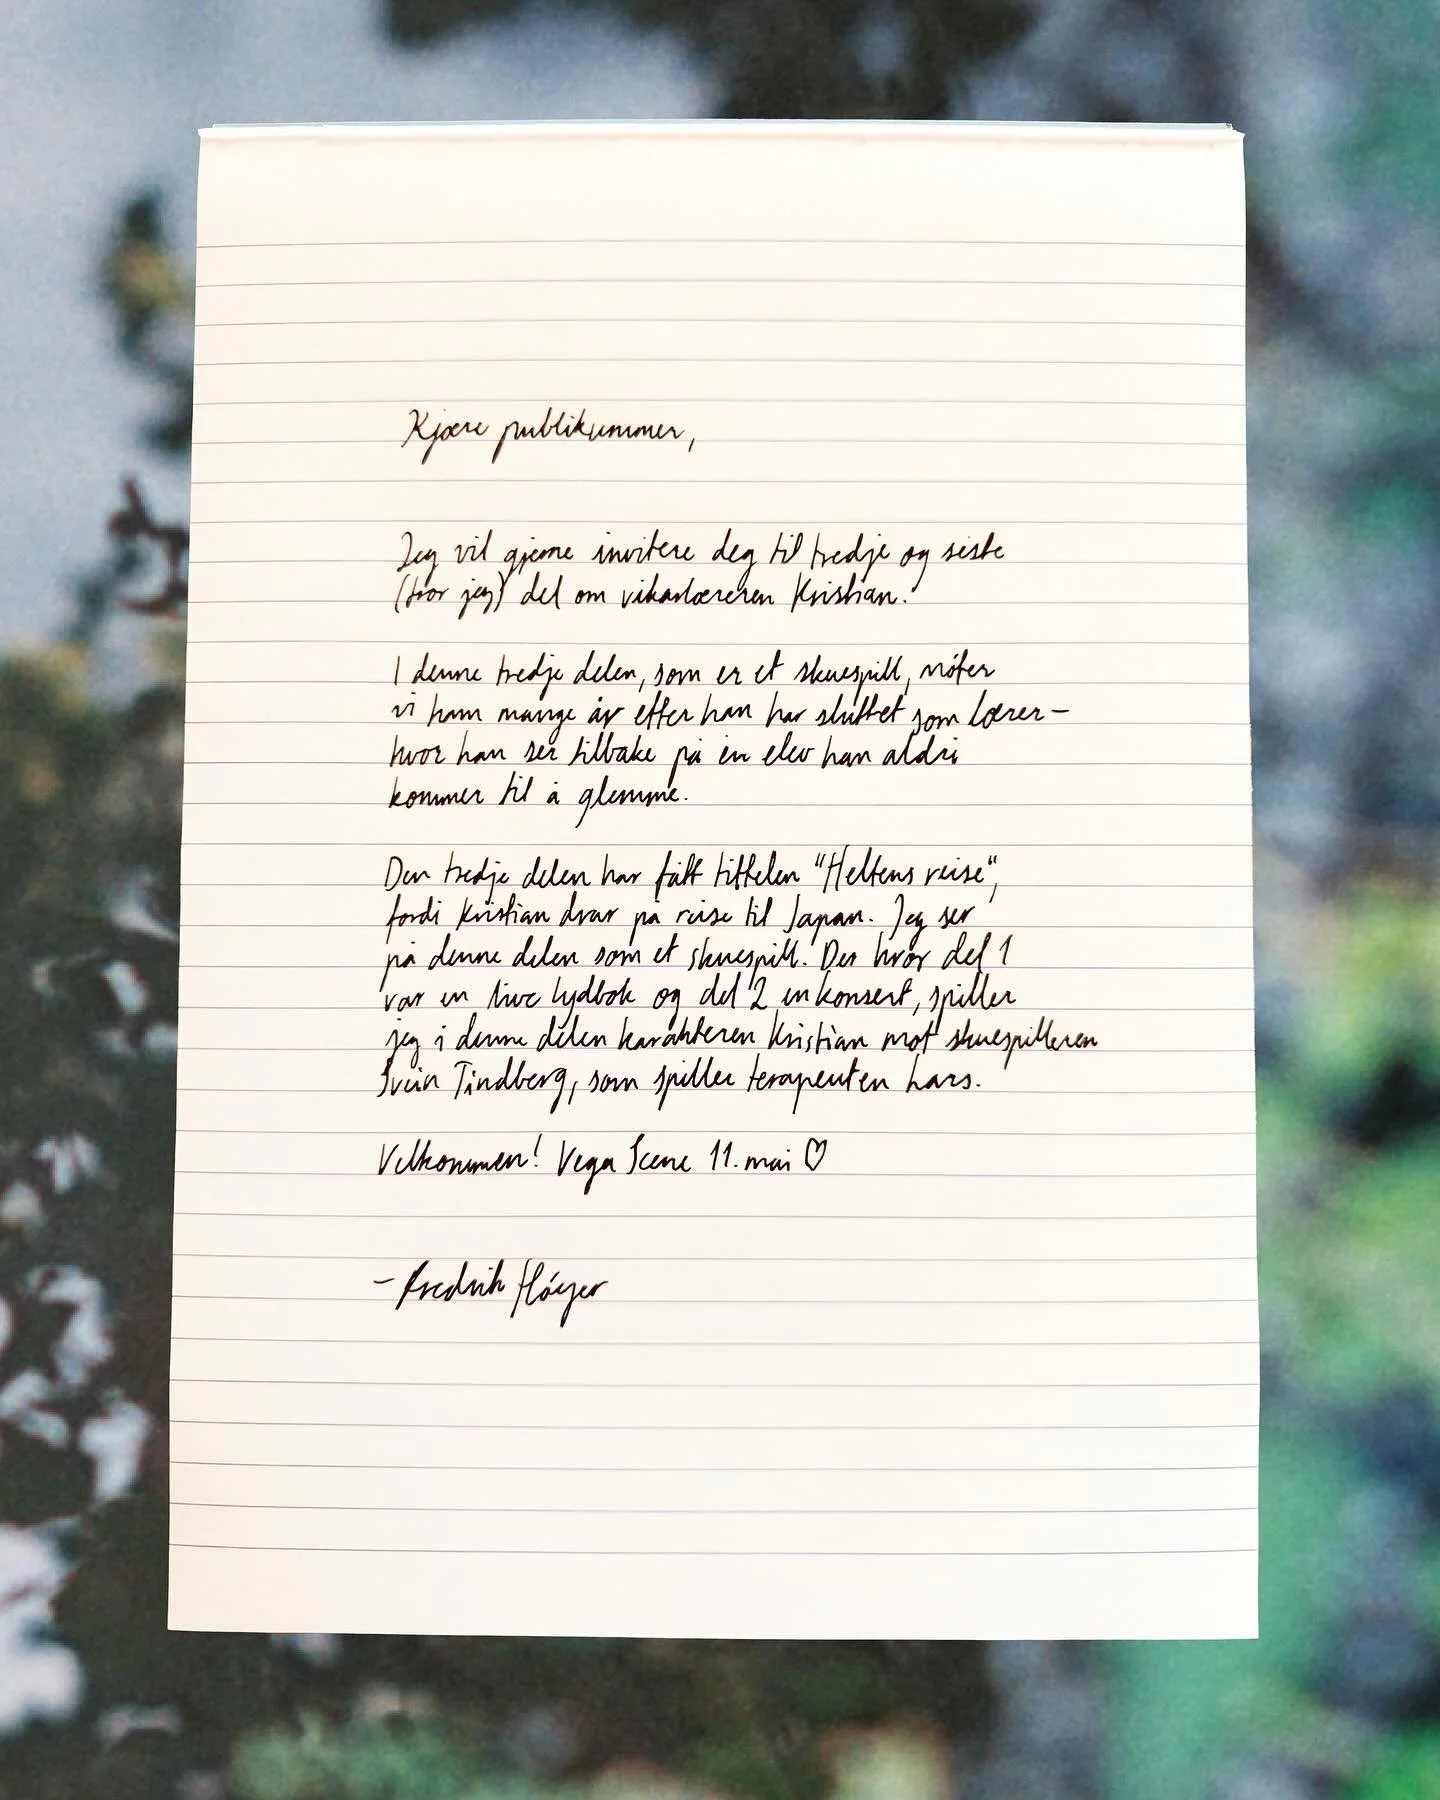 Kjære publikummer,
Jeg vil gjerne invitere deg til tredje og siste
(tror jeg) del om vikarlæreren Kristian.
I denne tredje delen, som er et skuespill, møter
vi ham mange år etter han har sluttet som lærer –
hvor han ser tilbake på en elev han aldri
kommer til å glemme.
Den tredje delen har fått tittelen "Heltens reise",
fordi Kristian drar på reise til Japan. Jeg ser
på denne delen som et skuespill. Der hvor del 1
var en live lydbok og del 2 en konsert, spiller
jeg i denne delen karakteren Kristian mot skuespilleren
Svein Tindberg, som spiller terapeuten hans.
Velkommen! Vega Scene 11. mai ♡
– Fredrik Høyer